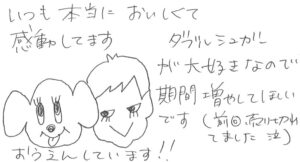 いつも本当においしくて
感動してます
ダブルシュガー
が大好きなので
期間増やしてほしい
です(前回、売り切れ
てました 泣)
おうえんしています!!